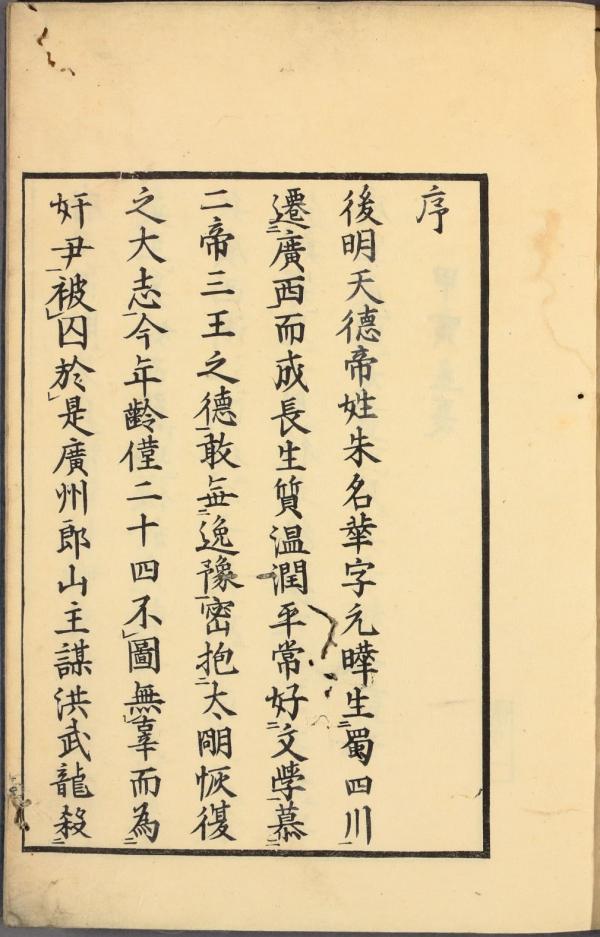 序
後明天德帝姓朱名華字元曄生蜀四川
遷廣西而成長生質温潤平常好文学慕
二帝三王之德敢無逸豫密抱大明恢復
之大志今年齢僅二十四不圖無辜而為
奸尹被囚於是廣州郎山主謀洪武龍殺